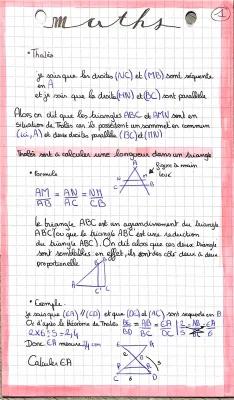 maths
1
• Thalès
je sais que les droites (NC) et (MB) sont sécante
en A
et je sais que la droite (MN) et (BC) sont parallèle
Alors on dit que les triangles ABC et AMN sont en
situation de Thalès car ils possèdent un sommet en commun
(ici, A) et deux droites parallèle (BC) et (MN)
Thalès sert à calculer une longueur dans un triangle
• formule
figure à main
levé
A
M N
B C
AM/AB = AN/AC = NM/CB
le triangle ABC est un agrandissement du triangle
du triangle ABC). On dit alors que ces deux triangle
sont semblables en effet, ils ont des côté deux à deux
proportionnelle
• Exemple
je sais que (EA) // (CD) et que (DE) et (AC) sont séquente en B.
Or d'après le théorème de Thalès
2x6:5 = 2,4
Donc EA mesure 2,4 cm
Calculer EA